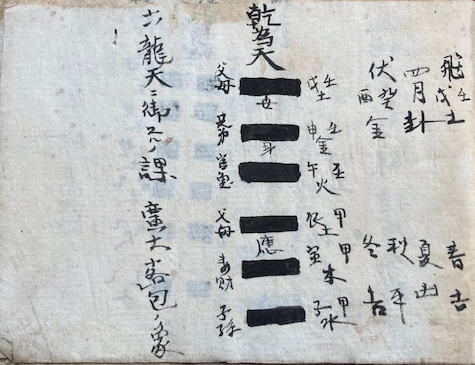 飛壬戌土
四月卦
伏癸酉金
春吉
夏凶
秋平
冬吉
乾為天
父母 世 壬戌土
兄弟 身 壬申金
官鬼 壬午火
父母 應 甲辰土
妻財 甲寅木
子孫 甲子水
六龍天ニ御スルノ課 廣大容包ノ象